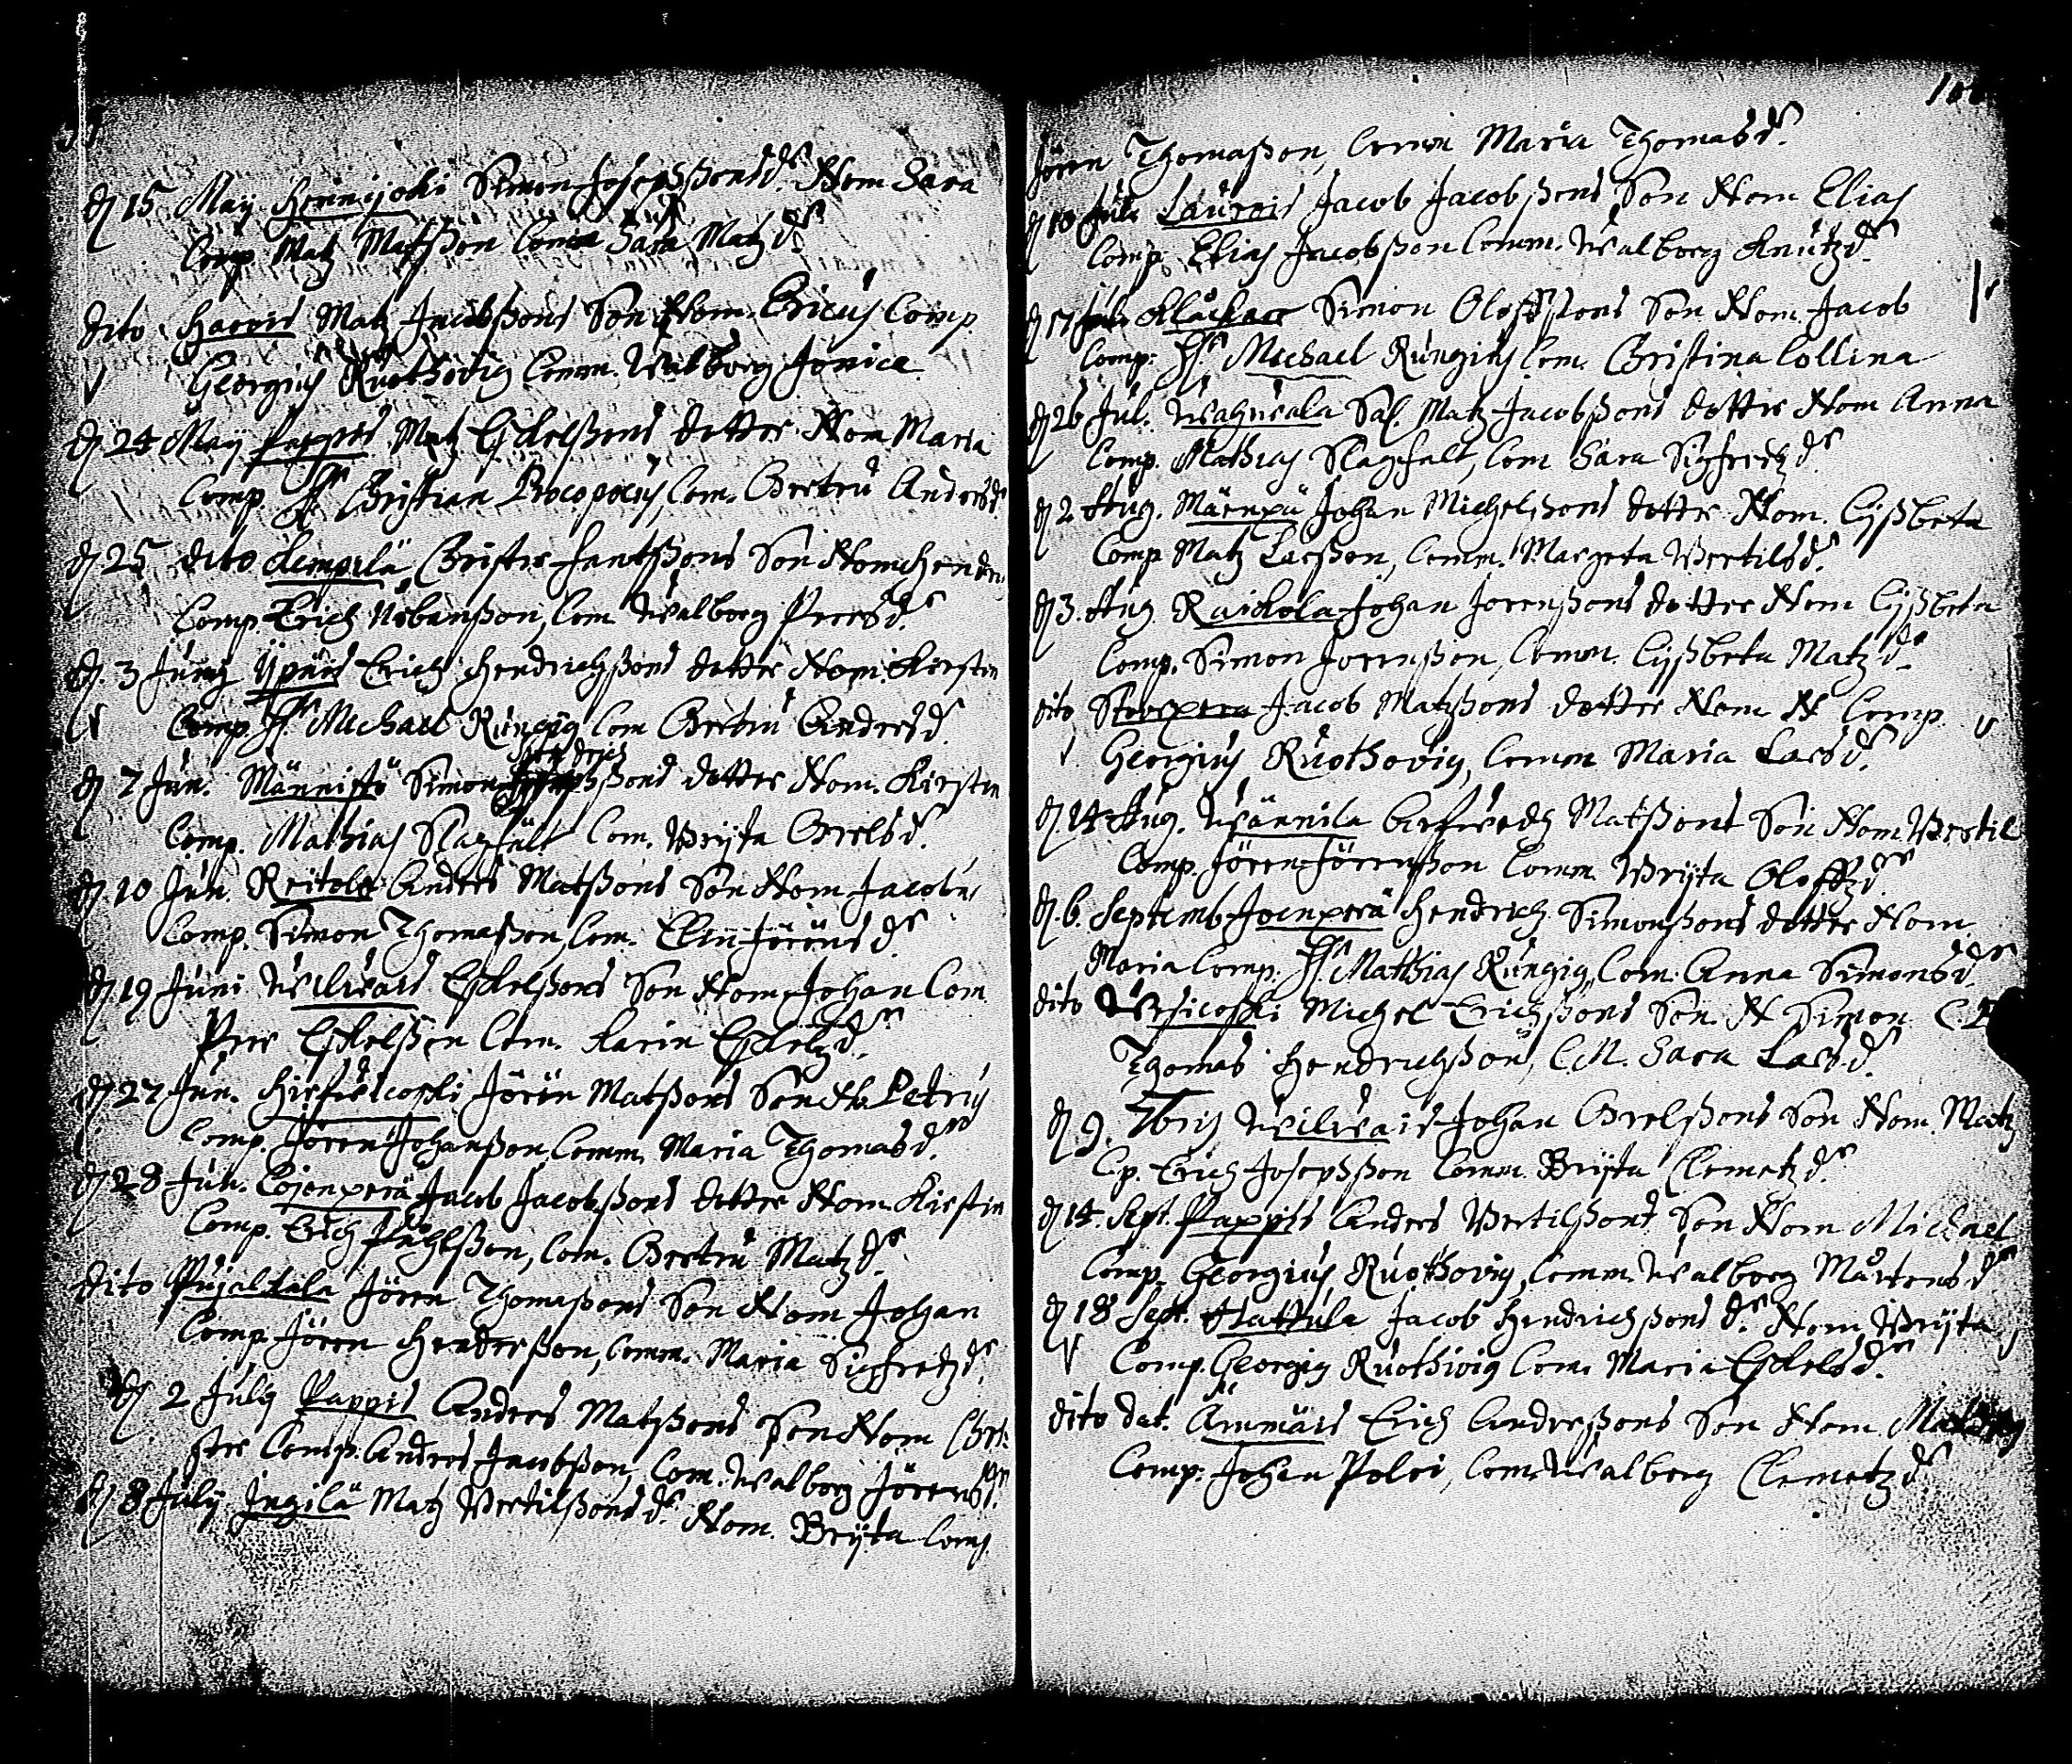 d. 15 May Heinijoki Simon Josepssons dr. Nom Sara
Comp. Matz Matsson Comm Sara Matzdr.
dito Harois Matz Jacobssons Son Nom. Ericus Comp.
Georgius Ruothovig Comm. Walborg Jonice
d. 24 May Pappis Matz Eskelssons dotter Nom Maria
Comp. Hr Christian Procopoeus, Com. Gertru Andersdr.
d. 25 dito Lempilä, Christer Hantssons Son Nom Hendr
Comp. Erich Urbansson, Com. Walborg Peersdr.
d. 3 Junij Ypäis Erich Hendrichssons dotter Nom. Kirstin
Comp. Hr. Michael Rungig Com Gertru Andersdr.
Hendrich
d. 7 Jun. Männistö Simon ssons dotter Nom. Kirstin
Comp. Mathias Slagfält Com. Bryta Grelsdr.
d. 10 Jun. Reitola Anders Matssons Son Nom Jacobus
Comp. Simon Thomasson, Com. Elin Jöröns dr.
d. 19 Juni Wilwais Eskelssons Son Nom Johan Com.
Peer Eskelsson Com. Karin Eskelsdr.
d. 27 Jun. Hirfwicoski Jörön Matssons Son N. Petrus
Comp. Jören Johansson, Comm. Maria Thomasdr.
d. 28 Jun. Cojenperä Jacob Jacobssons dotter Nom. Kirstin
Comp. Erich Påhlsson, Com. Gertru Matzdr.
dito Pujaltala Jören Thomassons Son Nom Johan
Comp. Jören Hendersson, Comm. Maria Sigfredzdr.
d. 2 July Pappis Anders Matzssons Son Nom Chri-
ster Comp. Anders Jacobsson, Com. Walborg Jörensdr.
d. 8 July Jngilä Matz Bertilssons dr. Nom. Bryta Comp.
Jören Thomasson, Comm Maria Thomasdr.
d. 10 Jul. Laurois Jacob Jacobssons Son Nom Elias
Comp. Elias Jacobsson Comm. Walborg Knutzdr.
d. 17 Jul. Klåckare Simon Oloffssons Son Nom. Jacob
Comp: Hr. Michael Rungius Com. Christina Collina
d. 26 Jul. Wahwala Sal. Matz Jacobssons dotter Nom Anna
Comp. Mathias Slagfält, Com Sara Sigfredzdr.
d. 2 Aug. Mäenpä Johan Michelssons dotter Nom. Lyssbeta
Comp Matz Larsson, Comm. Margeta Bertilsdr.
d. 3. Aug. Raickola Johan Jorenssons dotter Nom Lyssbeta
Comp. Simon Jorensson, Comm. Lyssbeta Matzdr.
dito Jacob Matzssons dotter Nom N Comp.
Georgius Ruothovig, Comm Maria Larsdr.
d. 14 Aug. Wännila Arfwedh Matssons Son Nom. Bertil
Comp. Jören Jörensson Comm. Bryta Oloffzdr.
d. 6. Septemb. Joenperä Hendrich Simonssons dotter Nom.
Maria Comp. Hr. Matthias Rungig, Com. Anna Simonsdr.
dito Wesicoski Michel Erichssons Son. N Simon C.P
Thomas Hendrichsson, C.M. Sara Larsdr.
d. 9. 7bris Wilwais Johan Grelssons Son Nom. Matz
Cp. Erich Josepsson Comm. Bryta Clemetzdr.
d. 14. Sept. Pappis Anders Bertilssons Son Nom Michael
Comp. Georgius Ruothovig, Comm. Walborg Mårtensdr.
d. 18 Sept. Hattula Jacob Hendrichssons dr. Nom. Bryta
Comp. Georgig Ruothivig Com. Maria Eskelsdr.
dito dat. Ammäis Erich Anderssons Son Nom.
Comp. Johan Polvi, Com. Walborg Clemetzdr.